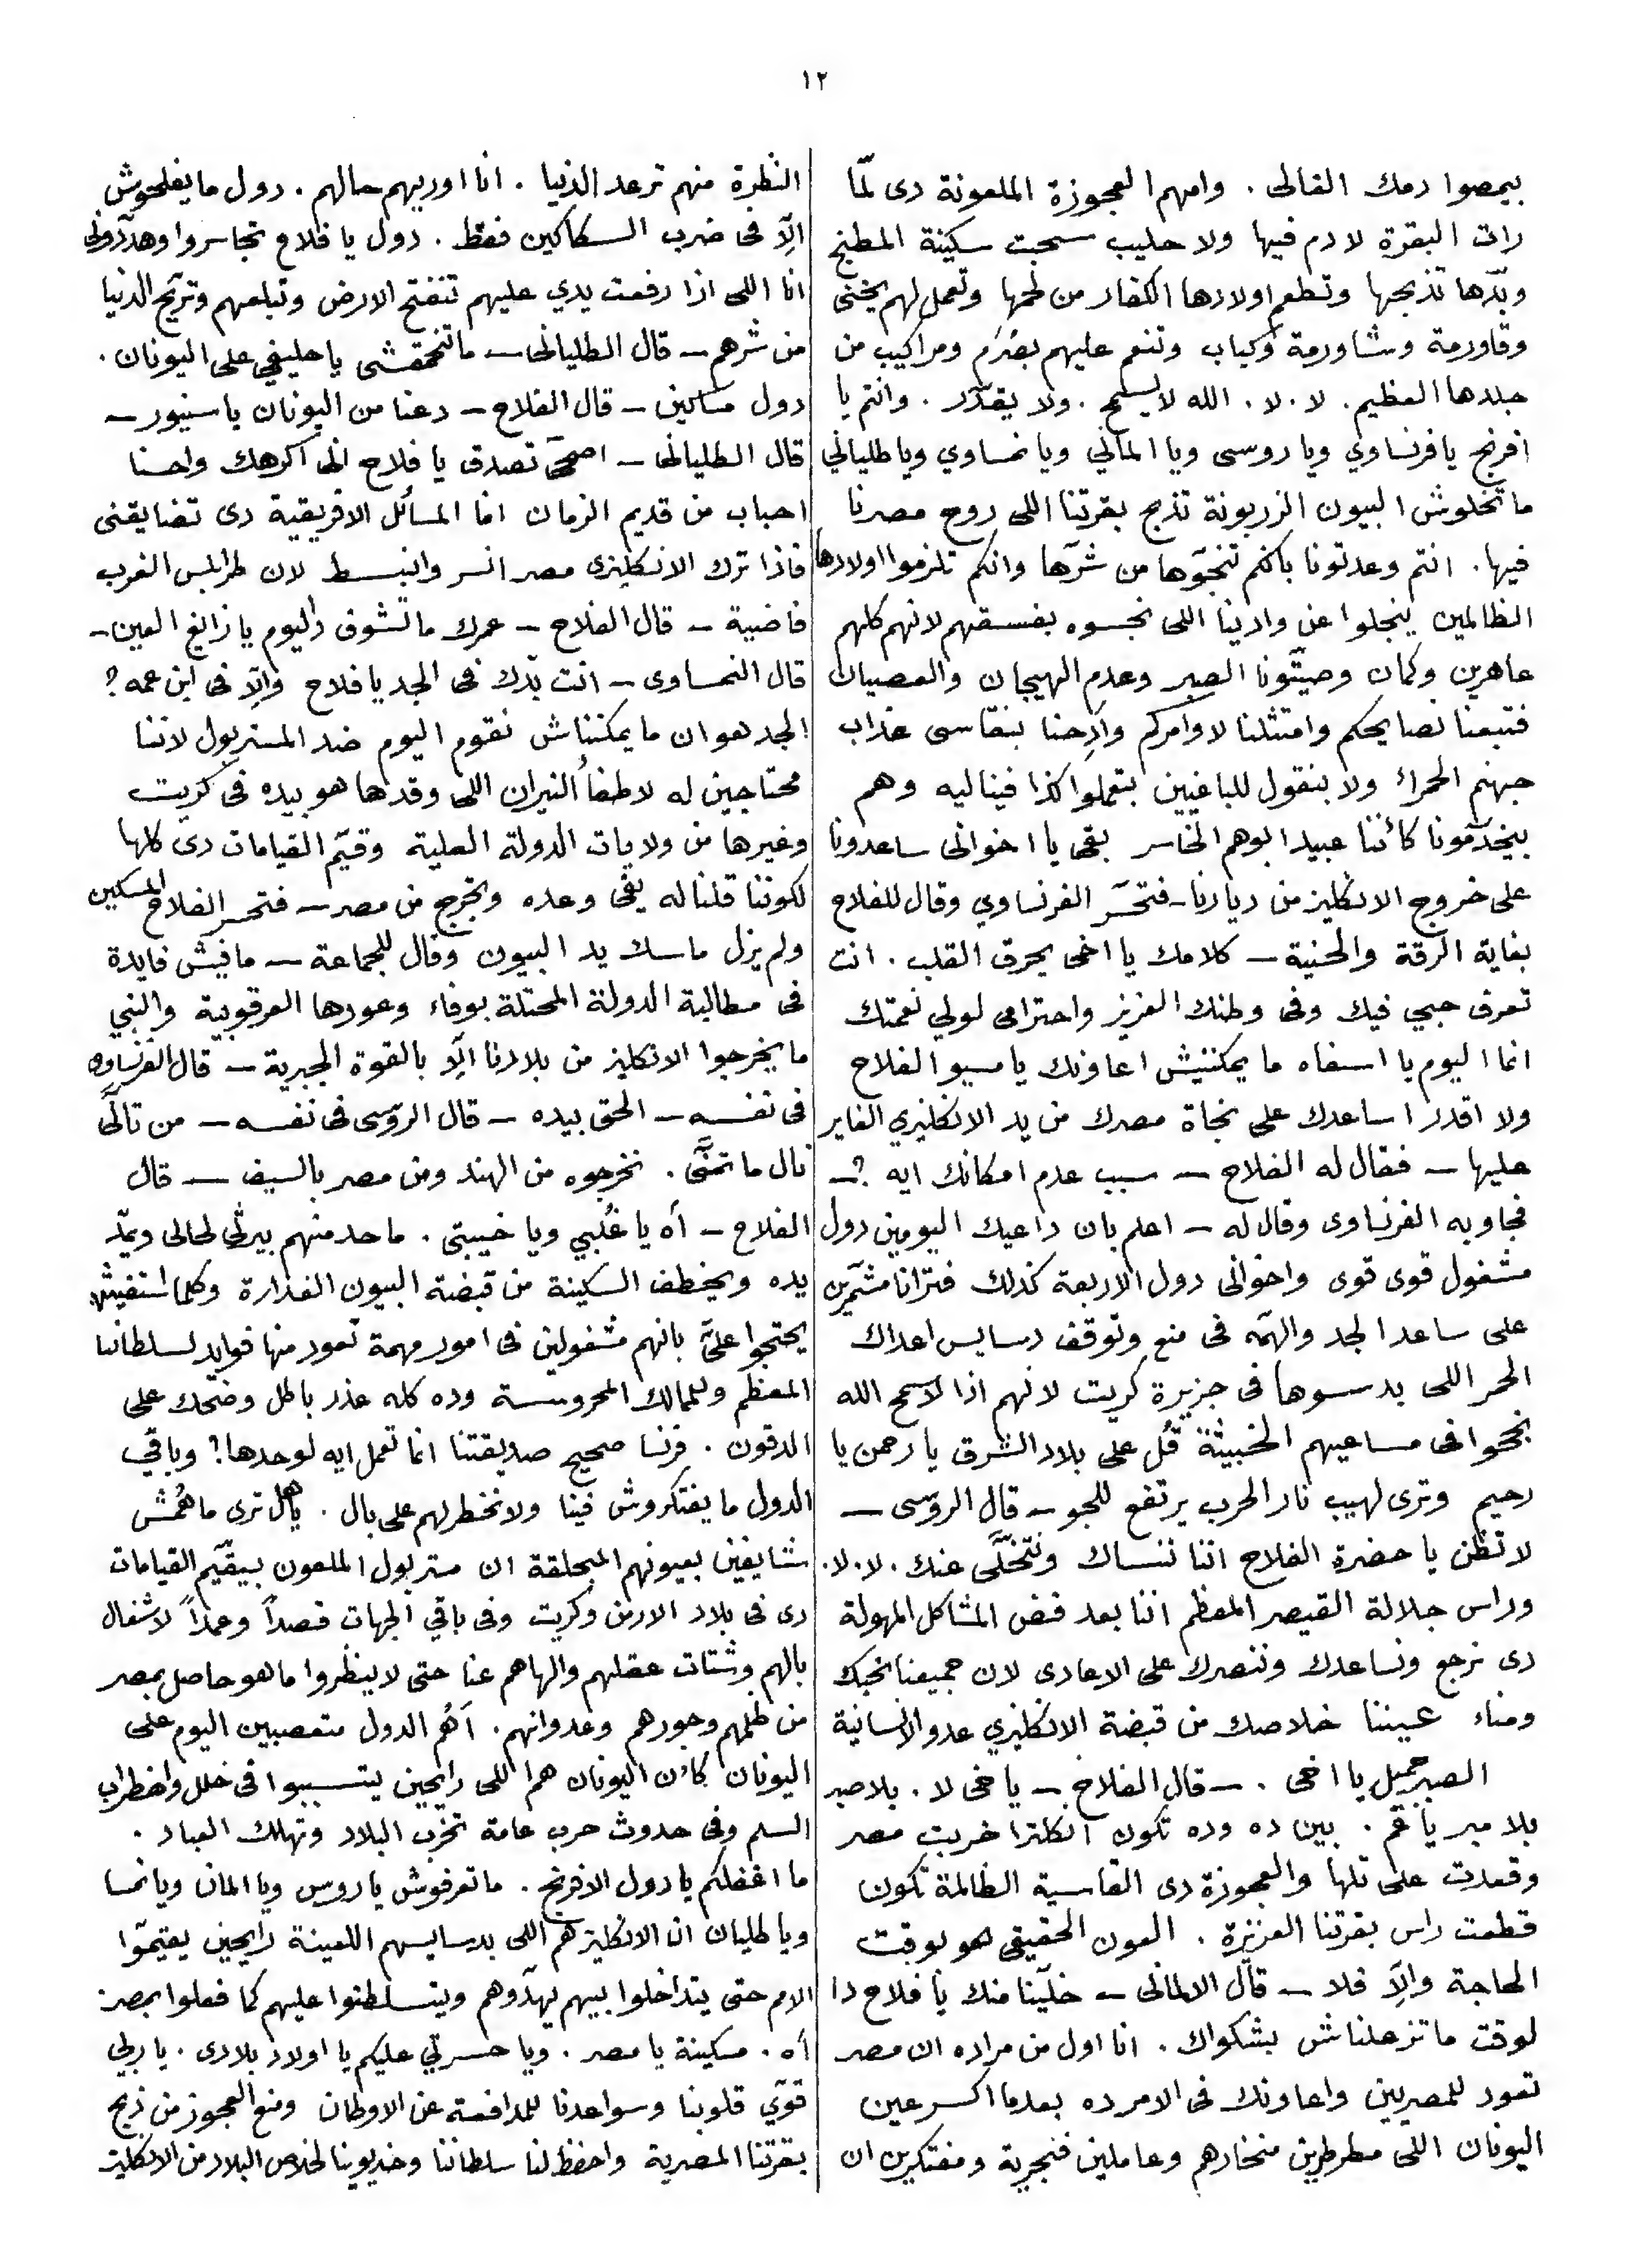 ١٢
بيمصوا دمك الغالى . وامهم العجوزة الملعونة دى لمّا
رات البقرة لا دم فيها ولا حليب سحبت سكينة المطبخ
وبدّها تذبحها وتطعم اولادها الكفار من لحمها وتعمل لهم يخنى
وقاورمة وشاورمة وكباب وتنعم عليهم بصُرَم ومراكيب من
جلدها العظيم . لا . لا . الله لا يسمح . ولا يقدّر . وانتم يا
افرنج يا فرنساوي ويا روسى ويا المانى ويا نمساوي ويا طليانى
ما تخلوش البيون الزربونة تذبح بقرتنا اللى روح مصرنا
فيها . انتم وعدتونا بانكم تنجّوها من شرّها وانكم تلزموا اولادها
الظالمين ينجلوا عن وادينا اللى نجسوه بفسقهم لانهم كلهم
عاهرين وكمان وصيتّونا الصبر وعدم الهيجان والعصيان
فتبعنا نصايحكم وامتثلنا لاوامركم وآدِحنا بنقاسى عذاب
جهنم الحمراء ولا بنقول للباغيين بتعملوا كذا فينا ليه وهم
بيخدّمونا كأننا عبيد ابوهم الخاسر بقى يا اخوانى ساعدونا
على خروج الانكليز من ديارنا - فتحسّر الفرنساوي وقال للفلاح
بغاية الرقة والحنية — كلامك يا اخى يحرق القلب . انت
تعرف حبي فيك وفى وطنك العزيز واحترامى لولي نعمتك
انما اليوم يا اسفاه ما يمكننيش اعاونك يا مسيو الفلاح
ولا اقدر اساعدك على نجاة مصرك من يد الانكليزي الغاير
عليها — فقال له الفلاح — سبب عدم امكانك ايه ؟ —
فجاوبه الفرنساوى وقال له — اعلم بان داعيك اليومين دول
مشغول قوى قوى واخوانى دول الاربعة كذلك فترانا مشمّرين
على ساعد الجد والهمّه فى منع وتوقف دسايس اعداك
الحمر اللى بدسوها فى جزيرة كريت لانهم اذا لا سمح الله
نجحوا فى مساعيهم الخبيثة قُل على بلاد الشرق يا رحمن يا
رحيم وترى لهيب نار الحرب يرتفع للجو — قال الروسى —
لا تظن يا حضرة الفلاح اننا ننساك ونتخلّى عنك . لا . لا .
وراس جلالة القيصر المعظم اننا بعد فض المشاكل المهولة
دى نرجع ونساعدك وننصرك على الاعادى لان جميعنا نحبك
ومناء عيننا خلاصك من قبضة الانكليزي عدو الانسانية
الصبر جميل يا اخى . — قال الفلاح — يا خى لا . بلا صبر
بلا مبر يا عّم . بين ده وده تكون انكلترا خربت مصر
وقعدت على تلها والعجوزة دى القاسية الظالمة تكون
قطعت راس بقرتنا العزيزة . العون الحقيقى هو بوقت
الحاجة وإلّا فلا — قال الالمانى — خلّينا منك يا فلاح دا
لوقت ما تزعلناش بشكواك . انا اول من مراده ان مصر
تعود للمصريين واعاونك فى الامر ده بعدما اكسر عين
اليونان اللى مطرطرين منخارهم وعاملين فنجرية ومفتكرين ان
النظرة منهم ترعد الدنيا . انا اوريهم حالهم . دول ما يفلحوش
الّا فى ضرب السكاكين فقط . دول يا فلاح تجاسروا وهدّدونى
انا اللى اذا رفعت يدي عليهم تنفتح الارض وتبلعهم وتريّح الدنيا
من شرهم — قال الطليانى — ما تتحمقشى يا حليفى على اليونان .
دول مساكين — قال الفلاح — دعنا من اليونان يا سنيور —
قال الطليانى — اصحى تصدق يا فلاح انى اكرهك واحنا
احباب من قديم الزمان انما المسائل الافريقية دى تضايقنى
فاذا ترك الانكليزى مصر انسر وانبسط لان طرابلس الغرب
فاضية — قال الفلاح — عمرك ما تشوف داليوم يا زايغ العين —
قال النمساوى — انت بدّك فى الجد يا فلاح وإلّا فى ابن عمه ؟
الجد هو ان ما يمكنناش نقوم اليوم ضد المستر بول لاننا
محتاجين له لاطفأ النيران اللى وقدها هو بيده فى كريت
وغيرها من ولايات الدولة العلية وقيّم القيامات دى كلها
لكوننا قلنا له يفى وعده ويخرج من مصر — فتحسر الفلاح المسكين
ولم يزل ماسك يد البيون وقال للجماعة — ما فيش فايدة
فى مطالبة الدولة المحتلة بوفاء وعودها العرقوبية والنبي
ما يخرجوا الانكليز من بلادنا الّا بالقوة الجبرية — قال الفرنساوى
فى نفسه — الحق بيده — قال الروسى فى نفسه — من تأنّى
نال ما تمنّى . نخرجوه من الهند ومن مصر بالسيف — قال
الفلاح — أه يا غُلبي ويا خيبتى . ما حد منهم بيرثى لحالى ويمدّ
يده ويخطف السكينة من قبضة البيون الغدارة وكلما استغيث
يحتجوا علىَّ بانهم مشغولين فى امور مهمة تعود منها فوايد لسلطاننا
المعظم وللممالك المحروسة وده كله عذر باطل وضحك على
الدقون . فرنسا صحيح صديقتنا انما تعمل ايه لوحدها ؟ وباقي
الدول ما يفتكروش فينا ولا نخطر لهم على بال . يا هل ترى ما هُمش
شايفين بعيونهم المبحلقة ان مستر بول الملعون بيقيّم القيامات
دى فى بلاد الارمن وكريت وفى باقي الجهات قصداً وعمداً لاشغال
بالهم وشتات عقلهم والهاهم عنا حتى لا ينظروا ما هو حاصل بمصر
من ظلمهم وجورهم وعدوانهم . أهُم الدول متعصبين اليوم على
اليونان كأن اليونان هم اللى رايحين يتسببوا فى خلل واضطراب
السلم وفى حدوث حرب عامة تخرب البلاد وتهلك العباد .
ما اغفلكم يا دول الافرنج . ما تعرفوش يا روس ويا المان ويا نمسا
ويا طليان ان الانكليز هم اللى بدسايسهم اللعينة رايحين يقيموا
الامم حتى يتداخلوا بينهم يهدّوهم ويتسلطنوا عليهم كما فعلوا بمصر
أه . مسكينة يا مصر . ويا حسرتي عليكم يا اولاد بلادى . يا ربي
قوّي قلوبنا وسواعدنا للمدافعة عن الاوطان ومنع العجوز من ذبح
بقرتنا المصرية واحفظ لنا سلطاننا وخديوينا لخلاص البلاد من الانكليز